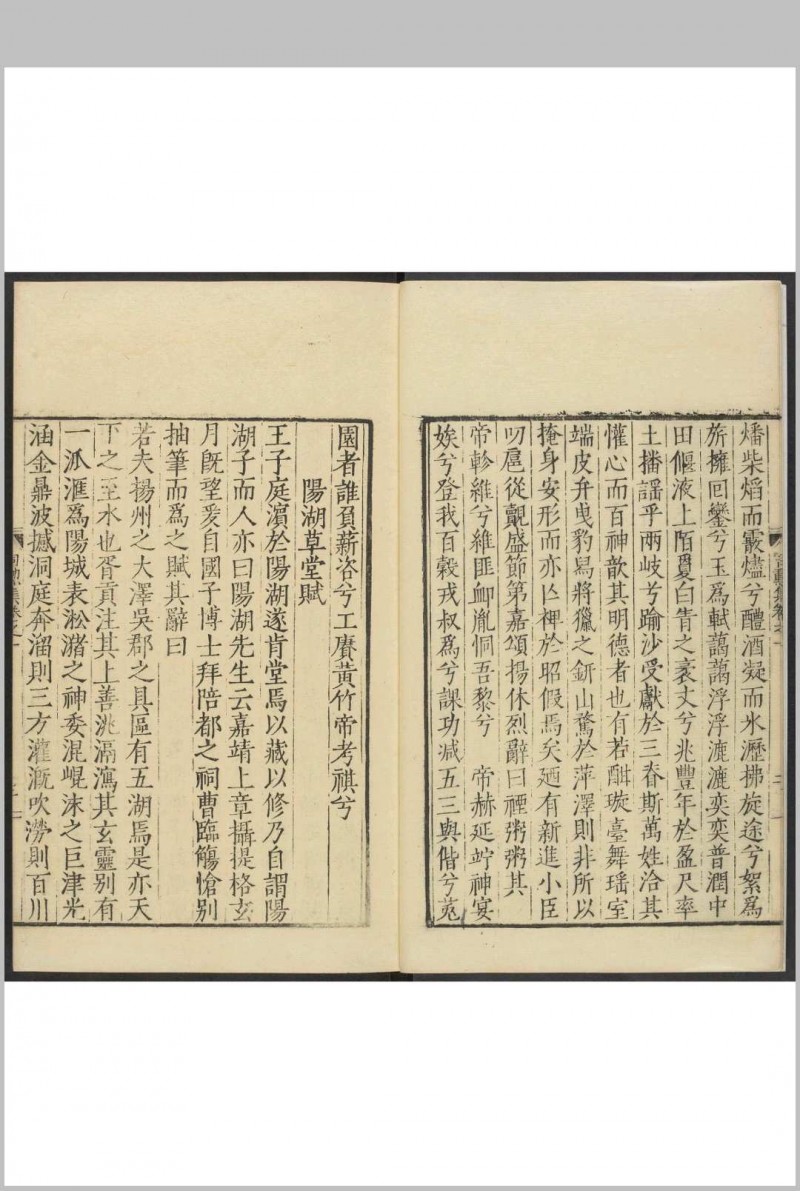 燔柴焰而霰燼兮醴酒凝而氷瀝拂旋途兮絮爲
旂擁回鑾兮玉爲軾藹藹浮浮漉漉奕奕普潤中
田偃液上陌夏白眚之袤丈兮兆豐年於盈尺率
土播謡乎兩岐兮踰沙受獻於三春斯萬姓洽其
懽心而百神歆其明德者也有若酣璇臺舞瑶室
端皮弁曳豹舄將獵之鈃山驚於萍澤則非所以
掩身安形而亦亡裨於昭假焉矣廼有新進小臣
叨扈從覿盛節第嘉頌揚休烈辭曰禋粥粥其
帝軫維兮維匪卹胤恫吾黎兮 帝赫延竚神宴
娭兮登我百穀戎叔爲兮課功减五三與偕兮菟
園者誰負薪咨兮工賡黃竹帝考祺兮
陽湖草堂賦
王子庭濵於陽湖遂肯堂焉以藏以修乃自謂陽
湖子而人亦曰陽湖先生云嘉靖上章攝提格玄
月旣望爰自國子博士拜陪都之祠曹臨觴愴别
抽筆而爲之賦其辭曰
若夫揚州之大澤吳郡之具區有五湖焉是亦天
下之至水也胥貢注其上善洮滆瀉其玄靈别有
一派滙爲陽城表淞瀦之神委混崐沫之巨津光
涵金鼎波撼洞庭奔溜則三方灌漑吹澇則百川